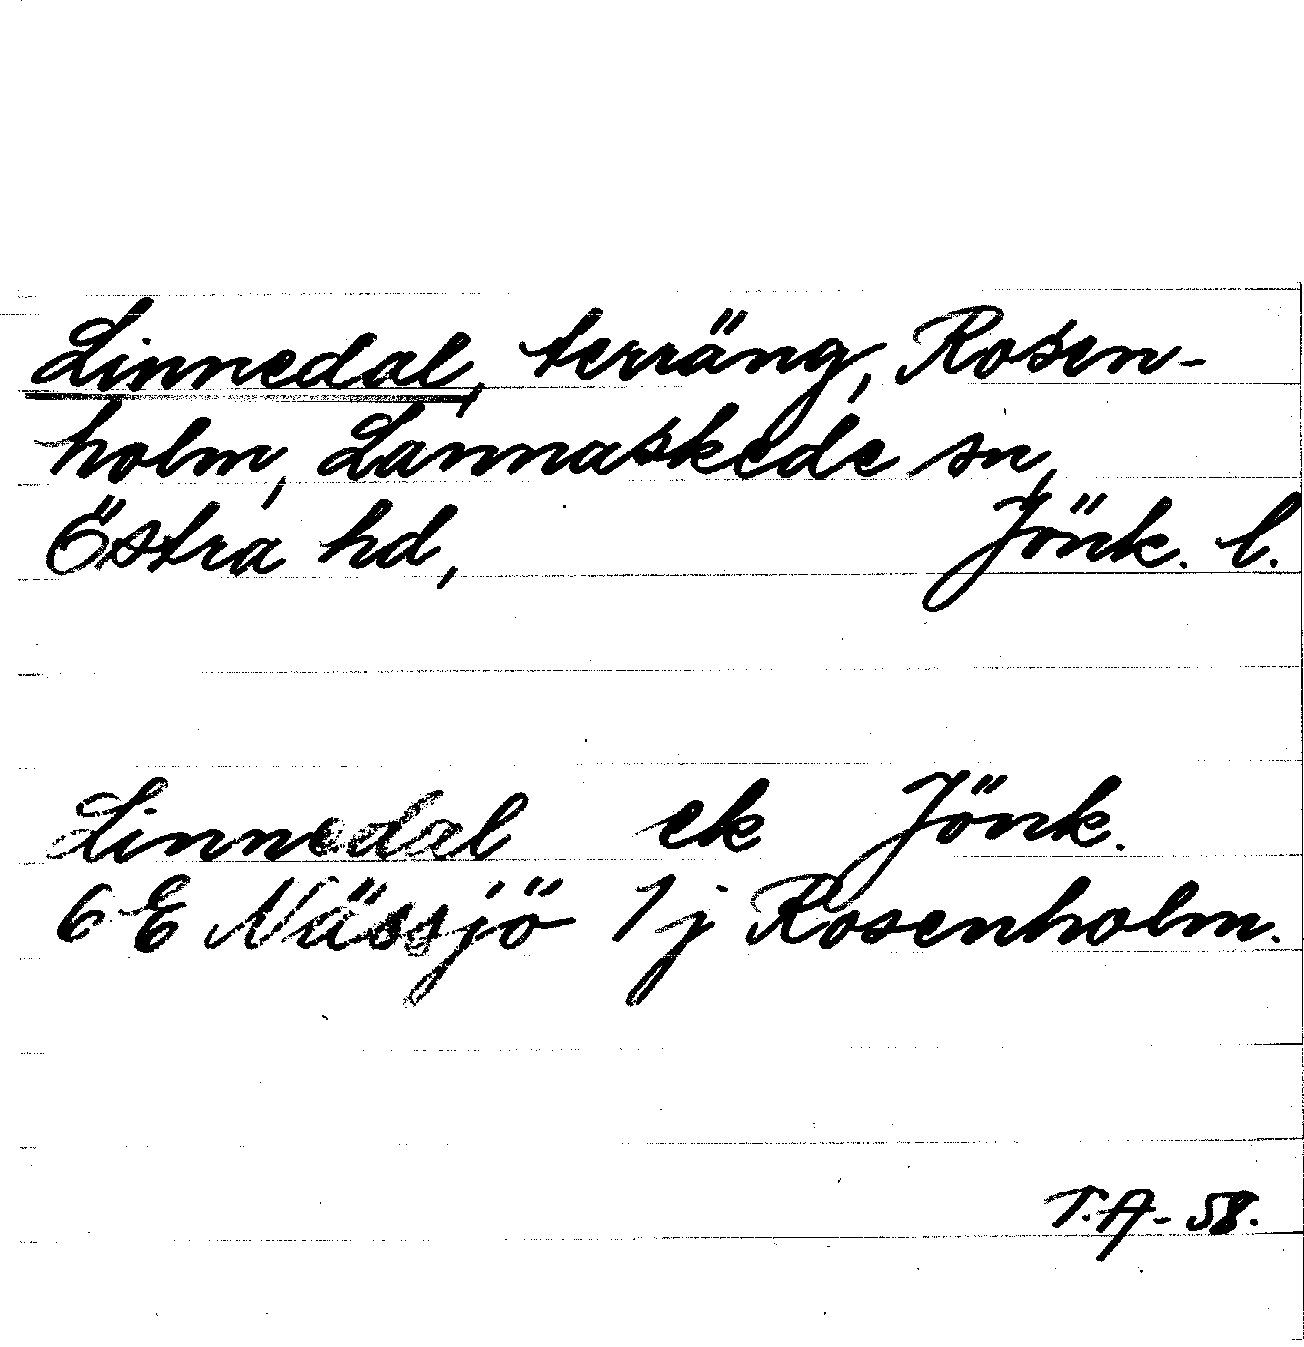 Linnedal, terräng, Rosen-
holm, Lannaskede sn,
Östra hd, Jönk. l.
Linnedal ek Jönk.
6 E Nässjö 1j Rosenholm.
T.A-58.